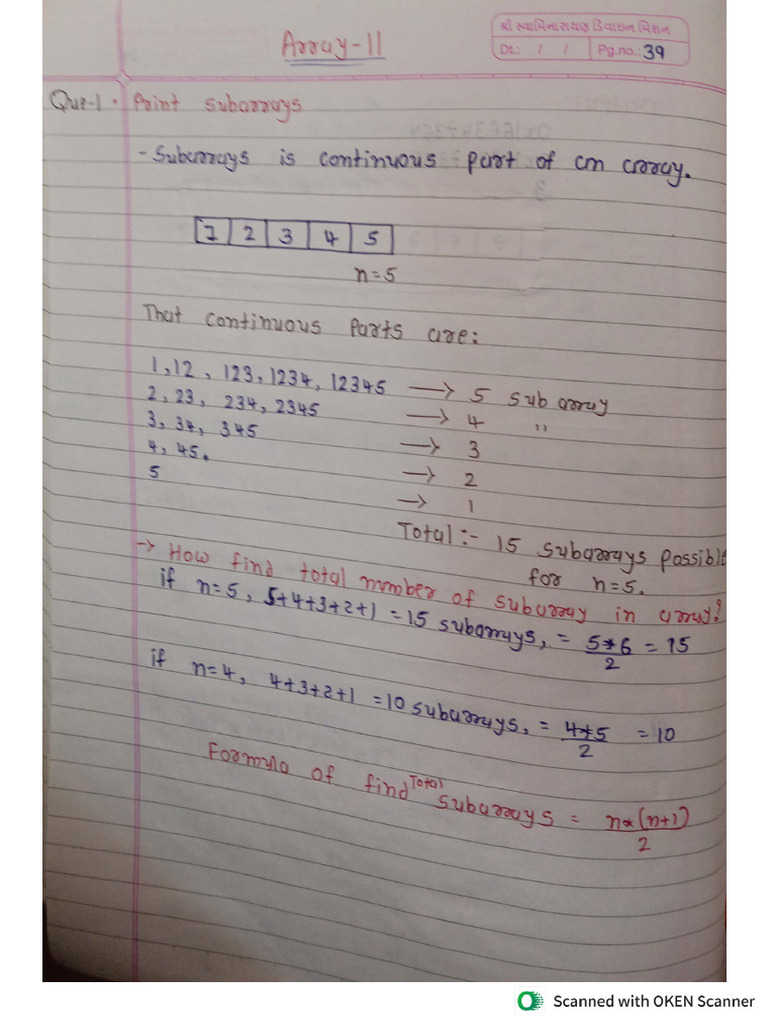 શ્રી સ્વામિનારાયણ ડિવાઇન મિશન
Array-11
Dt.: / / Pg.no.: 39
Que-1. Print subarrays
- Subarrays is continuous part of an array.
1 2 3 4 5
n=5
That continuous Parts are:
1,12, 123, 1234, 12345 → 5 sub array
2, 23, 234, 2345 → 4 "
3, 34, 345 → 3
4, 45. → 2
5 → 1
Total :- 15 subarrays possible
for n=5.
→ How find total number of subarray in array?
if n=5, 5+4+3+2+1 = 15 subarrays, = 5*6/2 = 15
if n=4, 4+3+2+1 = 10 subarrays, = 4*5/2 = 10
Formula of find Total subarrays = n*(n+1)/2
Scanned with OKEN Scanner